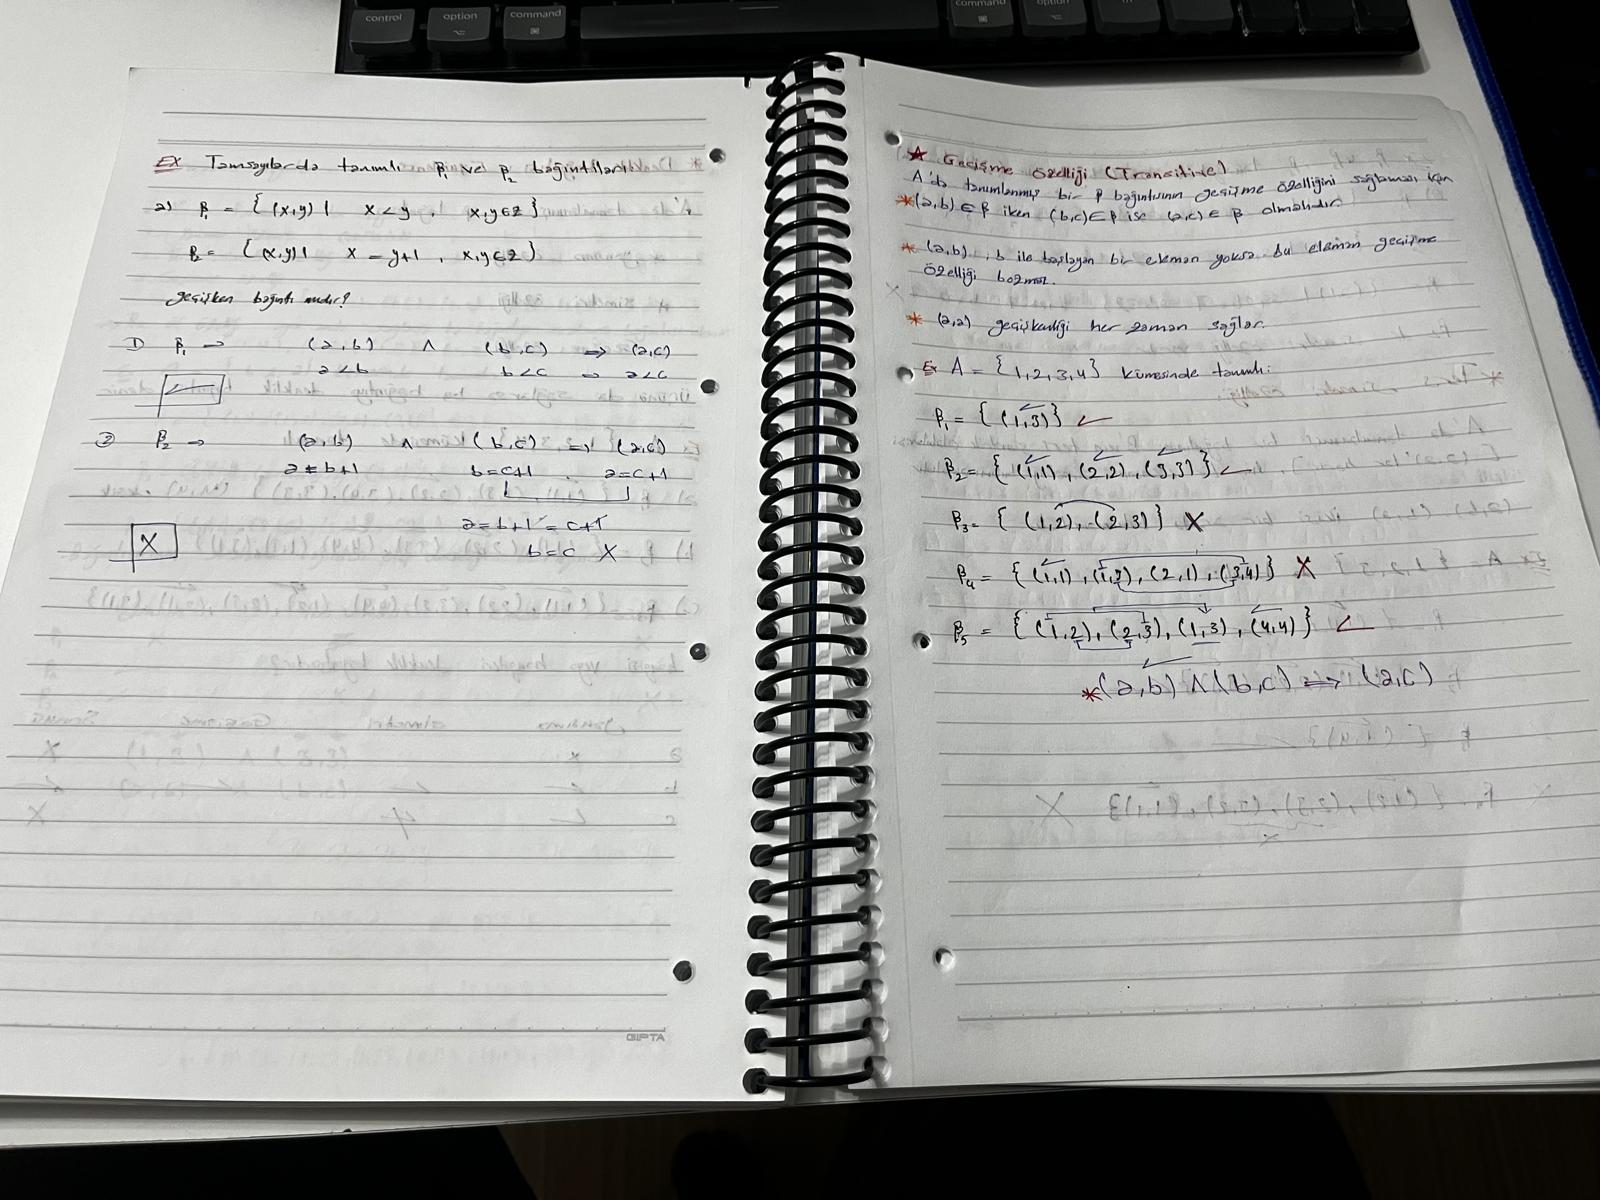 control
option
command
command
option
EX Tamsayılarda tanımlı β₁ ve β₂ bağıntıları
a) β₁ = {(x,y) | x<y , x,y∈Z}
β₂ = {(x,y) | x = y+1 , x,y∈Z}
geçişken bağıntı mıdır?
① β₁ → (a,b) ∧ (b,c) ⇒ (a,c)
a<b b<c → a<c
✓
② β₂ → (a,b) ∧ (b,c) ⇒ (a,c)
a=b+1 b=c+1 . a=c+1
a=b+1=c+1
b=c X
X
GIPTA
★ Geçişme özelliği (Transitive)
A'da tanımlanmış bir β bağıntısının geçişme özelliğini sağlaması için
*(a,b)∈β iken (b,c)∈β ise (a,c)∈β olmalıdır.
* (a,b), b ile başlayan bir eleman yoksa bu eleman geçişme
özelliği bozmaz.
* (a,a) geçişkenliği her zaman sağlar.
Ex A = {1,2,3,4} kümesinde tanımlı:
β₁ = {(1,3)} ✓
β₂ = {(1,1), (2,2), (3,3)} ✓
β₃ = {(1,2), (2,3)} X
β₄ = {(1,1), (1,3), (2,1), (3,4)} X
β₅ = {(1,2), (2,3), (1,3), (4,4)} ✓
*(a,b) ∧ (b,c) ⇒ (a,c)